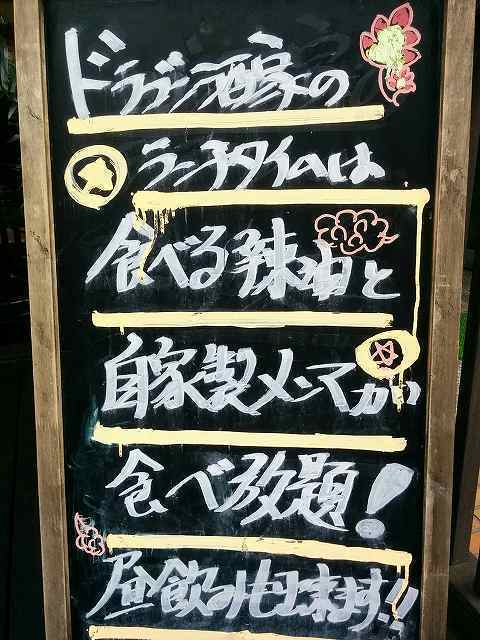 ドラゴン酒家の
ランチタイムは
食べる辣油と
自家製メンマが
食べ放題!
昼飲みも出来ます!!